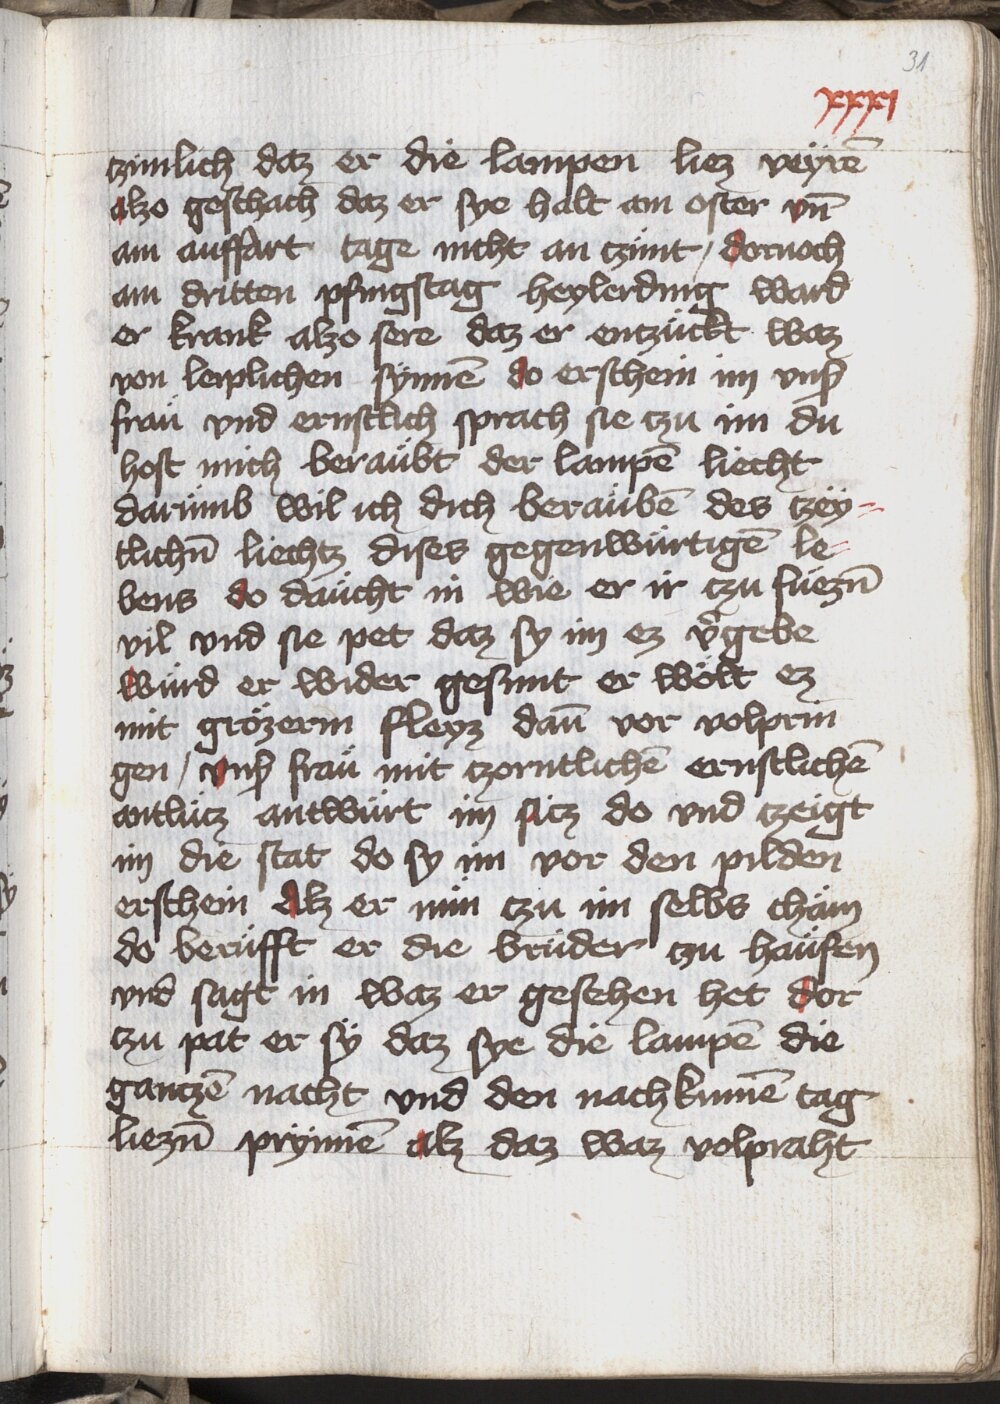 31
xxxi
czimlich daz er die lampen liez veyrē
alzo geschach daz er sye halt am oster vn̄
am auffart tage nicht an czünt / dornoch
am dritten pfingstag heylerding ward
er krank alzo sere daz er entzückt waz
von leiplichen synnē do erschein im vnsʼ
fraü vnd ernstlich sprach sie czu im du
host mich beraübt der lampē liecht
darümb wil ich dich beraübē des tzey=
tlichn̄ liechtz dises gegenwürtigē le=
bens do däucht in wie er ir czu füezn̄
vil vnd sie pet daz sy im ez vʼgebe
würd er wider gesunt er wölt ez
mit grözerm fleyz dan̄ vor volprin
gen / vnsʼ fraü mit czorntlichē ernstlichē
antlücz antwürt im sicz do vnd czeigt
im die stat do sy im vor den pilden
erschein alz er nün czu im selbs chäm
do berüfft er die brüder czu haüfen
vnd sagt in waz er gesehen het dor
czu pat er sÿ daz sye die lampē die
gantzē nacht vnd den nachkumē tag
liezn̄ prynnē alz daz waz volpraht